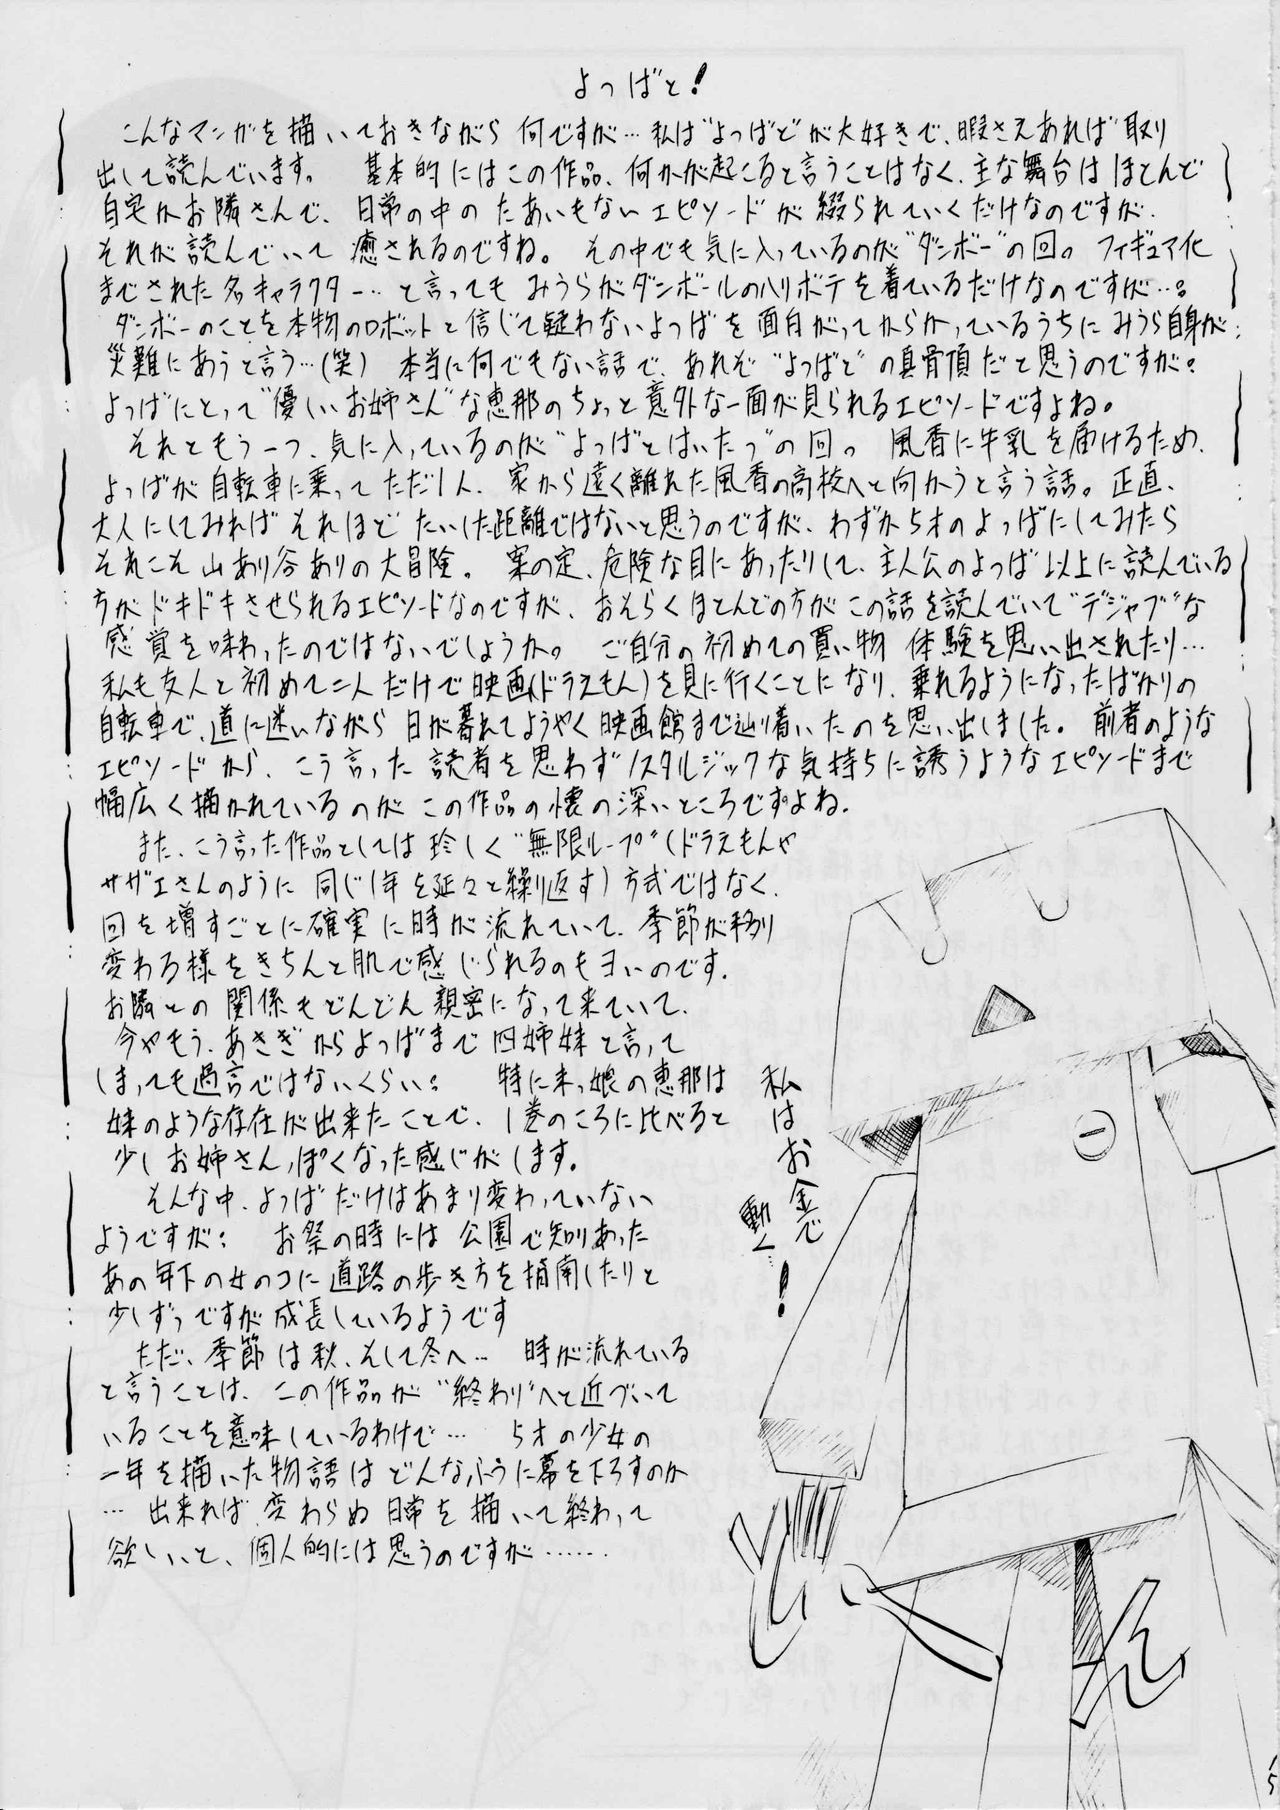 よつばと!
こんなマンガを描いておきながら 何ですが… 私は"よつばと"が大好きで、暇さえあれば取り
出して読んでいます。 基本的にはこの作品、何かが起こると言うことはなく、主な舞台はほとんど
自宅かお隣さんで、日常の中の たあいもないエピソードが 綴られていくだけなのですが、
それが読んでいて 癒されるのですね。 その中でも気に入っているのが"ダンボー"の回。 フィギュア化
までされた名キャラクター… と言っても みうらがダンボールのハリボテを着ているだけなのですが…。
ダンボーのことを本物のロボットと信じて疑わないよつばを面白がってからかっているうちにみうら自身が
災難にあうと言う…(笑) 本当に何でもない話で、あれぞ"よつばと"の真骨頂だと思うのですが。
よつばにとって"優しいお姉さん"な恵那のちょっと意外な一面が見られるエピソードですよね。
それともう一つ、気に入っているのが"よつばとはいたつ"の回。 風香に牛乳を届けるため、
よつばが自転車に乗ってただ1人、家から遠く離れた風香の高校へと向かうと言う話。正直、
大人にしてみればそれほど たいした距離ではないと思うのですが、わずか5才のよつばにしてみたら
それこそ山あり谷ありの大冒険。 案の定、危険な目にあったりして、主人公のよつば以上に読んでいる
方がドキドキさせられるエピソードなのですが、おそらくほとんどの方がこの話を読んでいて"デジャブ"な
感覚を味わったのではないでしょうか。 ご自分の初めての買い物 体験を思い出されたり…
私も友人と初めて二人だけで映画(ドラえもん)を見に行くことになり、乗れるようになったばかりの
自転車で、道に迷いながら 日が暮れてようやく映画館まで辿り着いたのを思い出しました。 前者のような
エピソードから、こう言った 読者を思わずノスタルジックな気持ちに誘うようなエピソードまで
幅広く描かれているのが この作品の懐の深いところですよね。
また、こう言った作品としては 珍しく"無限ループ"(ドラえもんや
サザエさんのように 同じ1年を延々と繰り返す)方式ではなく、
回を増すごとに確実に時が流れていて、季節が移り
変わる様をきちんと肌で感じられるのもヨいのです。
お隣との関係もどんどん親密になって来ていて、
今やもう、あさぎからよつばまで四姉妹と言って
しまっても過言ではないくらい。 特に末っ娘の恵那は
妹のような存在が出来たことで、1巻のころに比べると
少しお姉さんっぽくなった感じがします。
そんな中、よつばだけはあまり変わっていない
ようですが… お祭の時には 公園で知りあった
あの年下の女のコに道路の歩き方を指南したりと
少しずつですが成長しているようです
ただ、季節は秋、そして冬へ… 時が流れている
と言うことは、この作品が"終わり"へと近づいて
いることを意味しているわけで… 5才の少女の
一年を描いた物語は どんなふうに幕を下ろすのか
… 出来れば 変わらぬ日常を描いて終わって
欲しいと、個人的には思うのですが……
私はお金で
動く…!
15